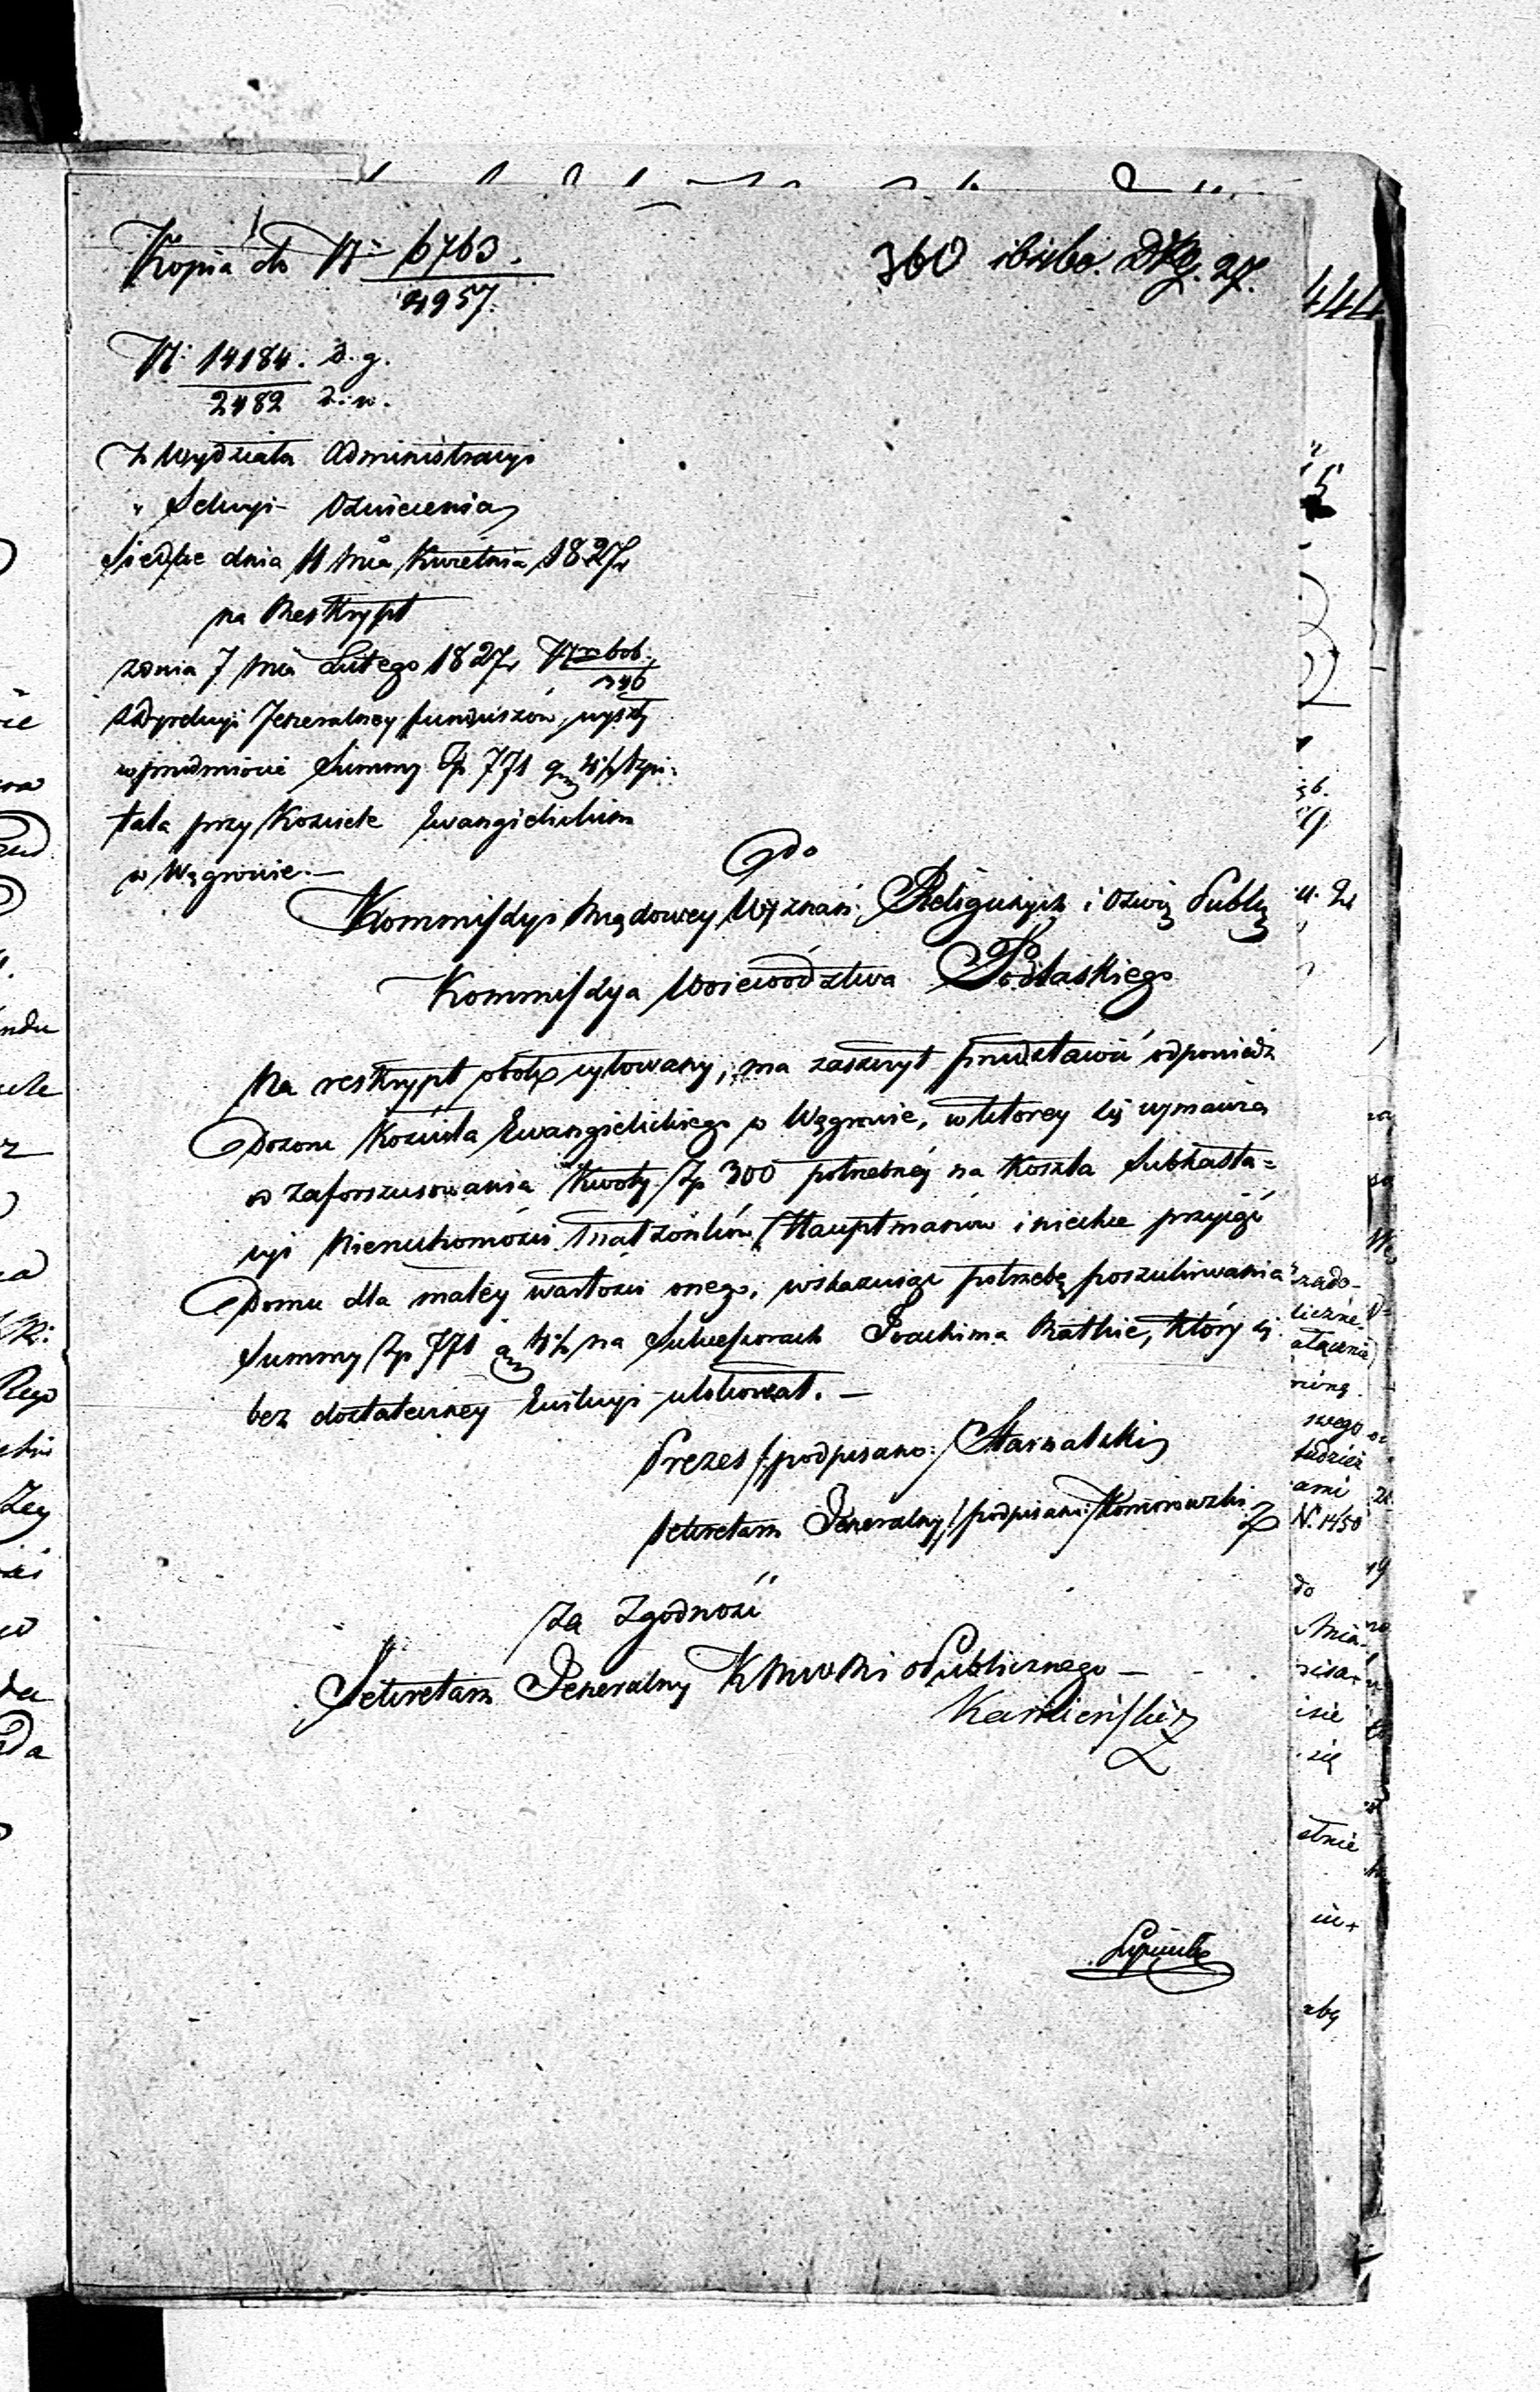 Kopia do Nr 6763.
4957.
360
444
Nr 14184. d. g.
2482 d. w.
z Wydziału Administracyi
" Sekcyi Oświecenia
Siedlce dnia 11 Mca Kwietnia 1827 r
na Reskrypt
z dnia 7 Mca Lutego 1827 r
z Dyrekcyi Jeneralney funduszów, wyszły
w przedmiocie Summy Zp 771 g Szpi:
tala przy Kościele Ewangielickim
w Węgrowie.—
Do
Kommissyi Rządowey Wyznań Religijnych i Oświe Publ
Kommissya Woiewództwa Podlaskiego
Na reskrypt obok cytowany, ma zaszczyt przedstawić odpowiedź
Dozoru Kościoła Ewangielickiego w Węgrowie, w którey się wymawia
od zaforszusowania Kwoty Zp 300 potrzebnéy na Koszta Subhasta=
cyi Nieruchomości Małżonków Hauptmanów i niechce przyjąć
Domu dla małéy wartości onego, wskazuiąc potrzebę poszukiwania
Summy Zp 771 g na Sukcessorach Joachima Rathie, który ią
bez dostateczney Ewikcyi ulokował. —
Prezes /:podpisano:/ Starzalski
Sekretarz Jeneralny /:podpisano:/ Komorowski
Za Zgodność
Sekretarz Jeneralny K R W R i O Publicznego —
Kamieński